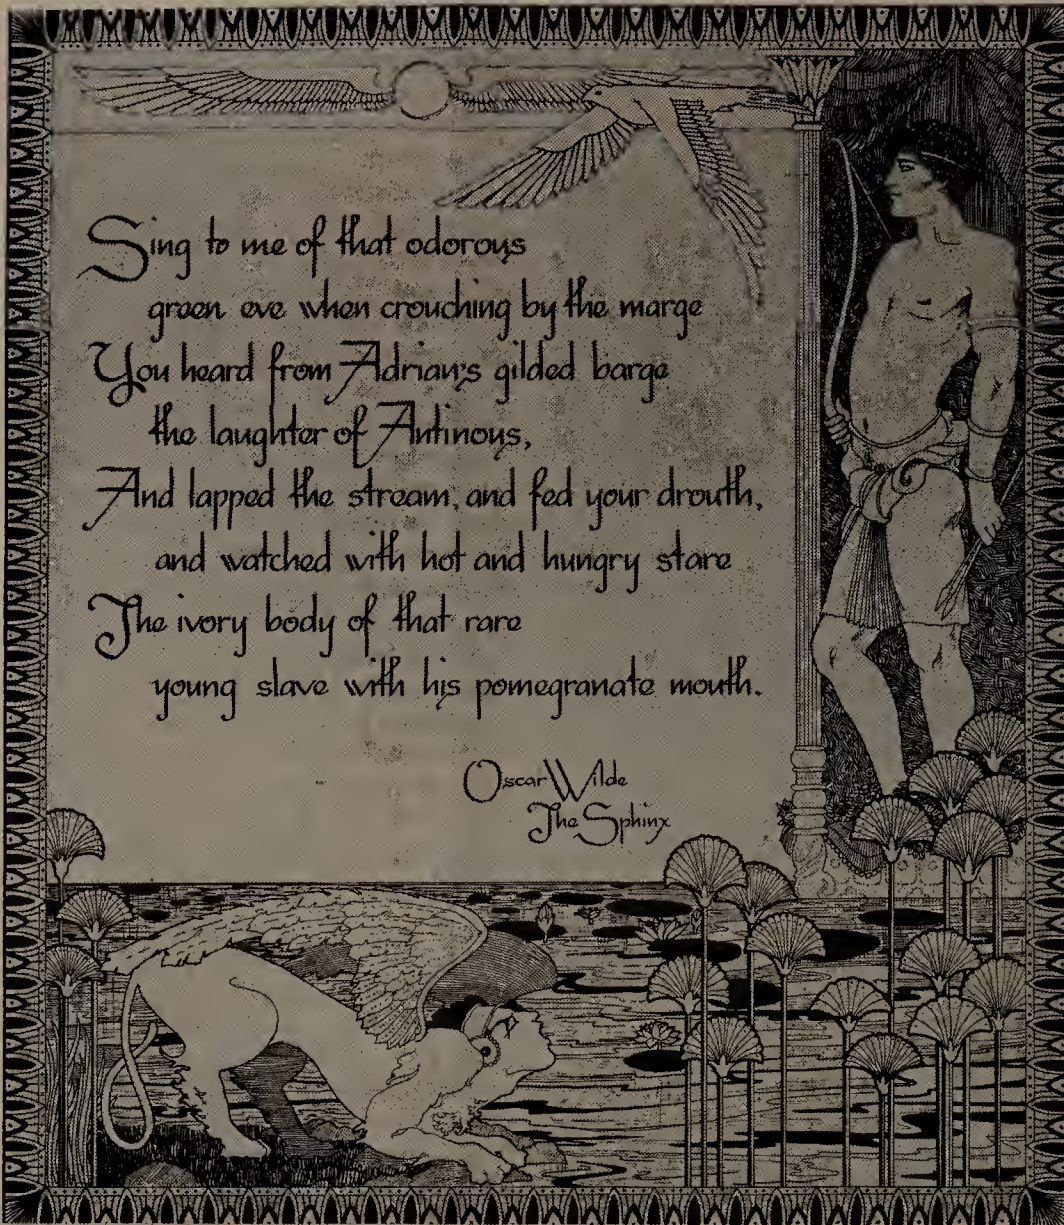 Sing to me of that odorous
green eve when crouching by the marge
You heard from Adrian's gilded barge
the laughter of Antinous,
And lapped the stream, and fed your drouth,
and watched with hot and hungry stare
The ivory body of that rare
young slave with his pomegranate mouth.
Oscar Wilde
The Sphinx